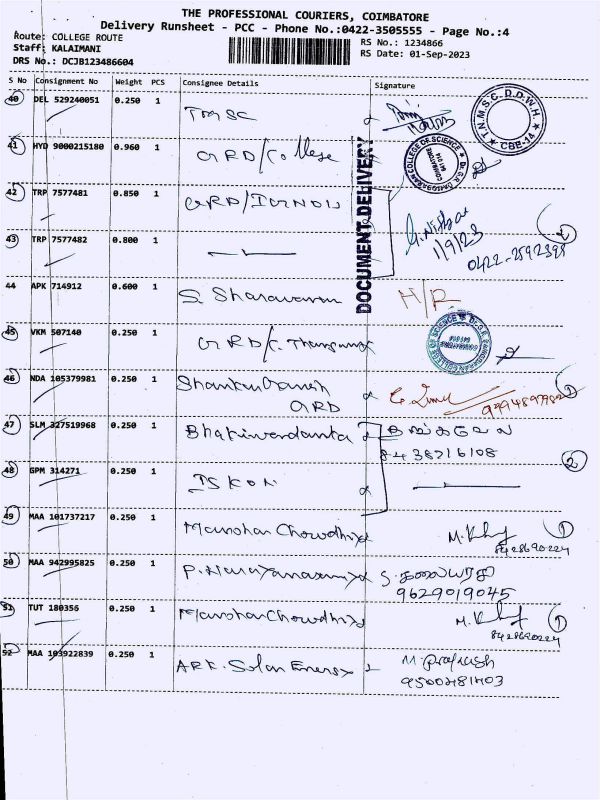 THE PROFESSIONAL COURIERS, COIMBATORE
Delivery Runsheet - PCC - Phone No.:0422-3505555 - Page No.:4
Route: COLLEGE ROUTE
RS No.: 1234866
Staff: KALAIMANI
RS Date: 01-Sep-2023
DRS No.: DCJB123486604
S No Consignment No Weight PCS Consignee Details Signature
40 DEL 529240051 0.250 1 TMSC
T.N.M.S.C-D.D.W.H. CBE-14
41 HYD 9000215180 0.960 1 GRD/College
COLLEGE OF SCIENCE COIMBATORE 641 014
DOCUMENT DELIVERY
42 TRP 7577481 0.850 1 GRD/IGNOU
1/9/23
0422-2592398
2
43 TRP 7577482 0.800 1
44 APK 714912 0.600 1 S. Sharavanan H/R
45 VKM 507140 0.250 1 GRD/C.
COLLEGE OF SCIENCE COIMBATORE 641 014
46 NDA 105379981 0.250 1 Shankar Ganesh
GRD
1
47 SLM 327519968 0.250 1 Bhaktivedanta
8438716108
48 GPM 314271 0.250 1 ISKON
2
49 MAA 101737217 0.250 1 Manohar Chowdhry
8428690224
1
50 MAA 942995825 0.250 1 P. Narayanasamy S. கலையரசி
9629019045
51 TUT 180356 0.250 1 Manohar Chowdhry
8428690224
1
52 MAA 103922839 0.250 1 ARK. Solar Energy M. Prakash
9500481403